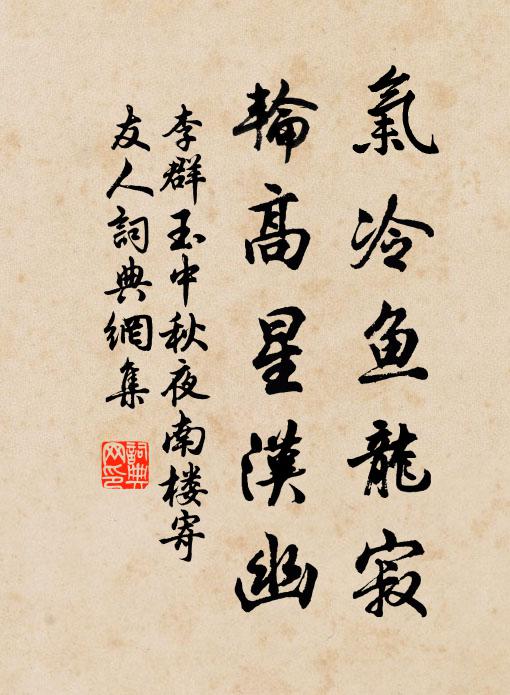 氣冷鱼龍寂
輪高星漢幽
李群玉中秋夜南楼寄
友人詞典網集
詞典
网印